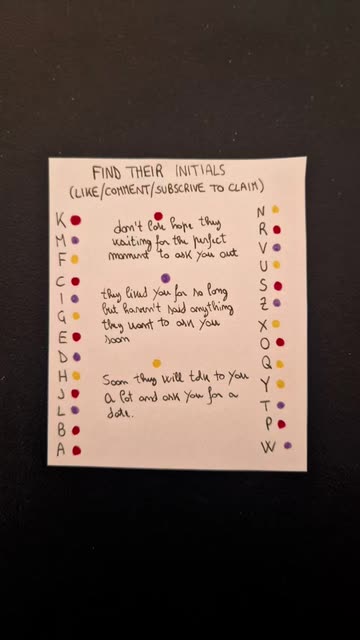 FIND THEIR INITIALS
(LIKE/COMMENT/SUBSCRIVE TO CLAIM)
K
M
F
C
I
G
E
D
H
J
L
B
A
don't lose hope they
waiting for the perfect
moment to ask you out
they liked you for so long
but haven't said anything
they want to ask you
soon
Soon they will talk to you
a lot and ask you for a
date.
N
R
V
U
S
Z
X
O
Q
Y
T
P
W